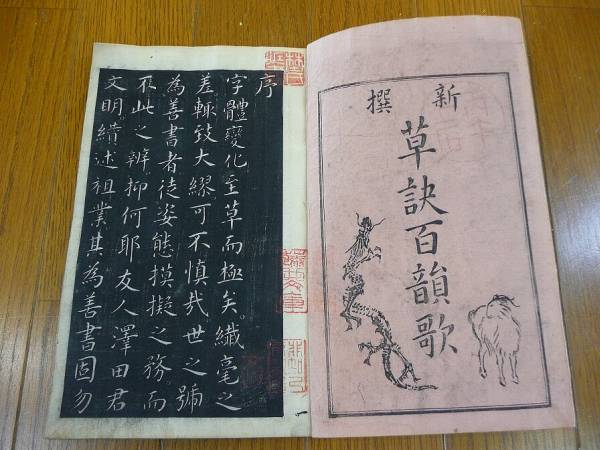 新撰
草訣百韻歌
序
字體變化至草而極矣纎毫之
差輙致大繆可不慎哉世之號
為善書者徒姿態摸擬之務而
不此之辨抑何耶友人澤田君
文明績述祖業其為善書固勿